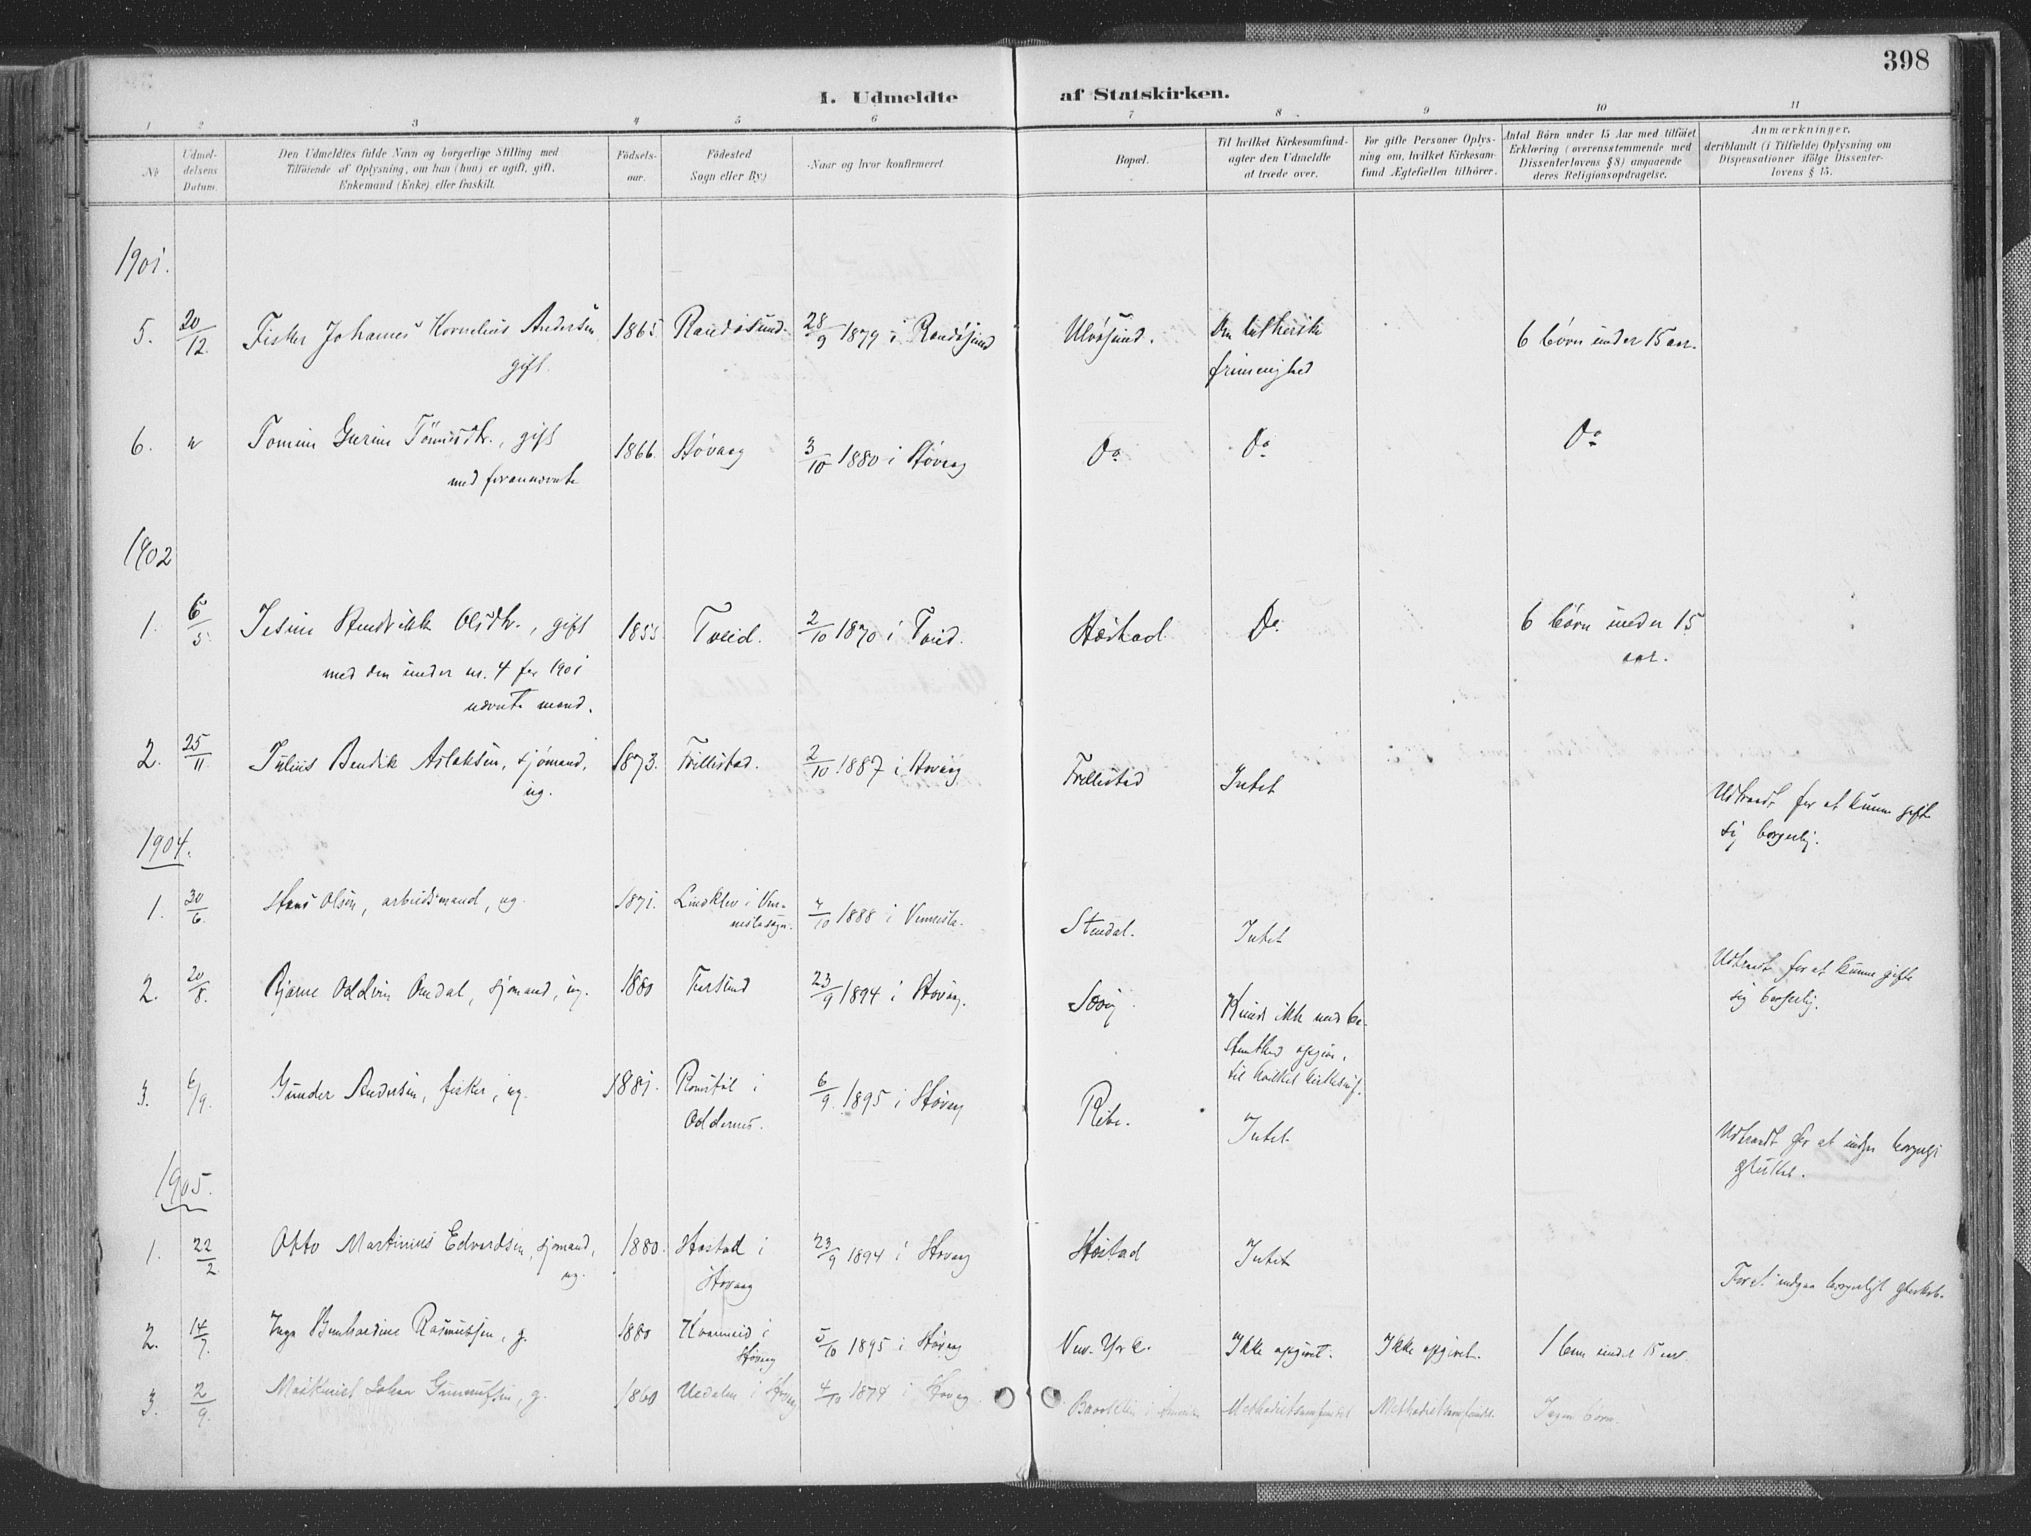 398
I. Udmeldte af Statskirken.
1 2 3 4 5 6 7 8 9 10 11
No
Udmel-
delsens
Datum.
Den Udmeldtes fulde Navn og borgerlige Stilling med
Tilföiende af Oplysning, om han (hun) er ugift, gift,
Enkemand (Enke) eller fraskilt.
Födsels-
aar.
Födested
Sogn eller By.)
Naar og hvor konfirmeret.
Bopæl.
Til hvilket Kirkesamfund-
agter den Udmeldte
at træde over.
For gifte Personer Oplys-
ning om, hvilket Kirkesam-
fund Ægtefællen tilhörer.
Antal Börn under 15 Aar med tilföiet
Erklæring (overensstemmende med
Dissenterlovens § 8) angaaende
deres Religionsopdragelse.
Anmærkninger,
deriblandt (i Tilfælde) Oplysning om
Dispensationer ifölge Dissenter-
lovens § 15.
1901.
5. 20/12. Fisker Johannes Kornelius Andersen, 1865 Randøsund. 28/9 1879 i Randøsund Ulvøsund. Den lutherske 6 børn under 15 aar.
gift. frimenighed
6. " Tomine Gurine Tömesdtr., gift 1866. Høvaag 3/10 1880 i Høvaag Do Do Do
med forannævnte
1902
1. 6/5 Jesine Hendrikke Olsdtr., gift 1855 Tveid. 2/10 1870 i Tveid. Hæstad Do 6 børn under 15
med den under nr. 4 for 1901 aar.
nævnte mand.
2. 25/11 Julius Bendik Aslaksen, sjømand, 1873. Trellestad. 2/10 1887 i Høvaag Trellestad Intet
ug. Udtraadt for at kunne gifte
sig borgerlig.
1904.
1. 30/6. Hans Olsen, arbeidsmand, ug. 1871. Lindklev i Ven- 7/10 1888 i Vennesla. Stendal. Intet
neslasogn. Udtraadt for at kunne gifte
sig borgerlig.
2. 20/8. Bjarne Oddvin Omdal, sjømand, ug. 1880 23/9 1894 i Høvaag. Kunde ikke med be-
stemthed opgive,
til hvilket kirkesamf.
3. 6/9. Gunder Andersen, fisker, ug. 1881. Romstøl i 6/9 1895 i Høvaag Ribe. Intet.
Oddernes. Udtraadt for at indgaa borgerligt
1905.
1. 22/2 Otto Martinius Edvardsen, sjømand, 1880. Hæstad i 23/9 1894 i Høvaag Hæstad Intet
ug. Høvaag For at indgaa borgerligt
2. 14/7. Inga Bernhardine Rasmussen, g. 1880 i 5/10 1895 i Høvaag New-York. Ikke opgivet. Ikke opgivet. 1 barn under 15 aar.
Høvaag
3. 2/9. Maskinist Johan Gunnufsen, g. 1860 Uedalen i Høvaag 4/10 1874 i Høvaag Brooklin i Amerika Methodistsamfundet Methodistsamfundet. Ingen børn.